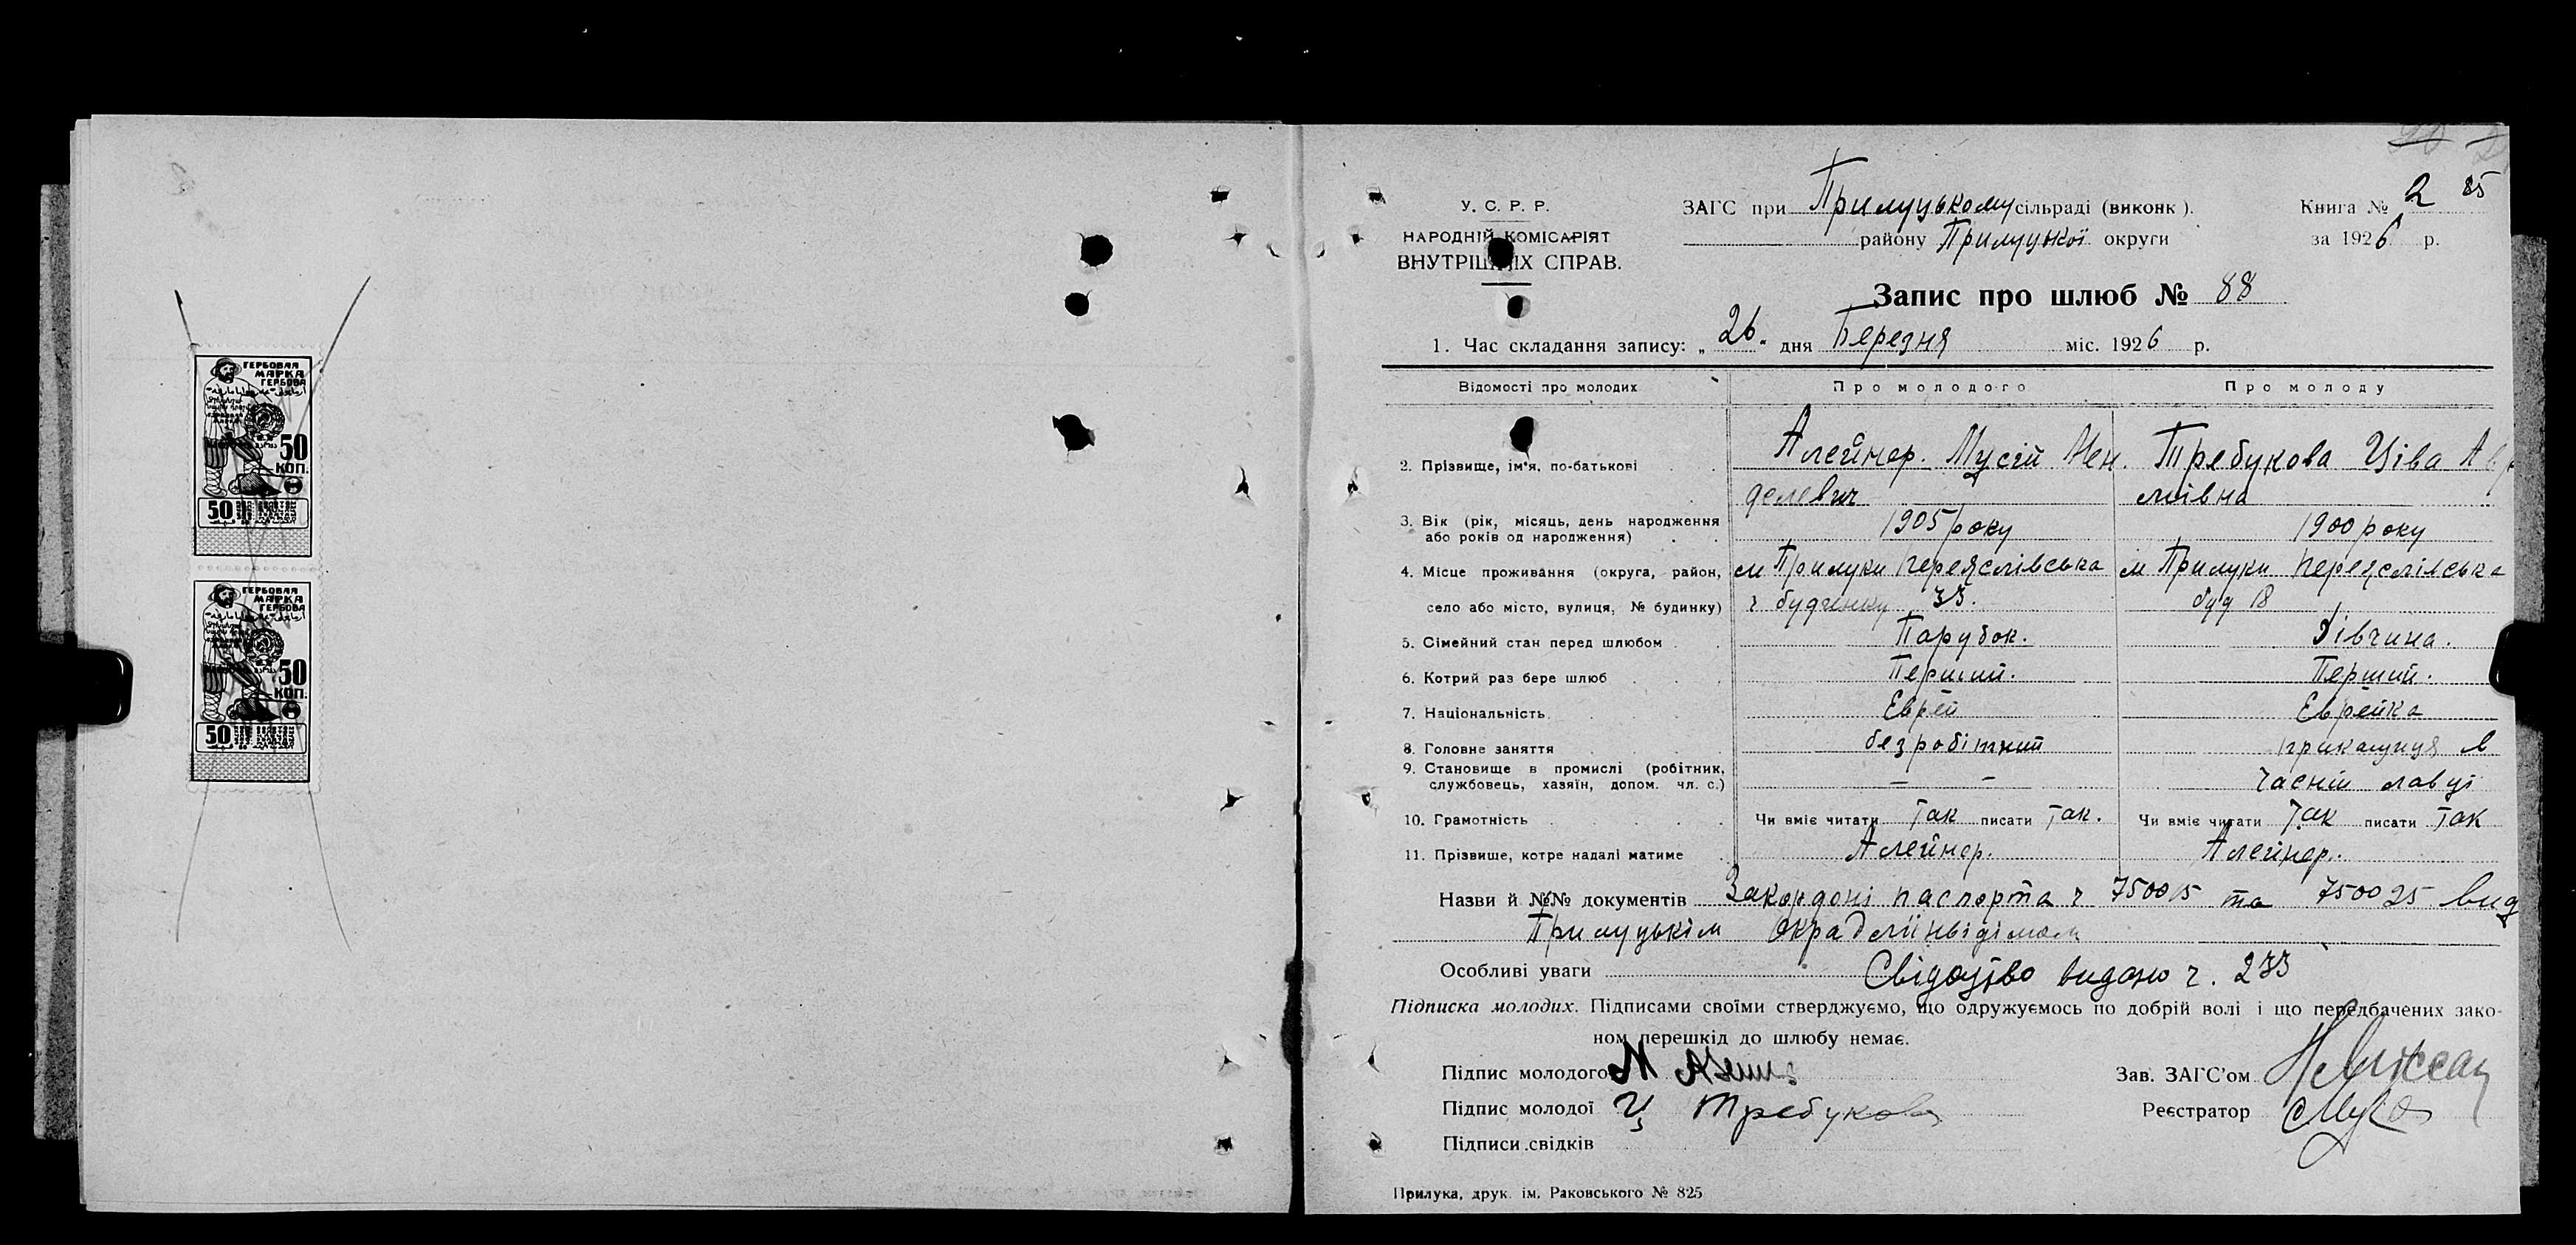 ГЕРБОВАЯ
МАРКА
ГЕРБОВА
50
КОП.
50
ГЕРБОВАЯ
МАРКА
ГЕРБОВА
50
КОП.
50
85
У. С. Р. Р.
НАРОДНІЙ КОМІСАРІЯТ
ВНУТРІШНІХ СПРАВ.
ЗАГС при Прилуцькому сільраді (виконк).
району Прилуцької округи
Книга № 2
за 1926 р.
Запис про шлюб № 88
1. Час складання запису: „26“ дня Березня міс. 1926 р.
Відомості про молодих Про молодого Про молоду
2. Прізвище, ім'я, по-батькові Алейнер. Мусій Мен. Требукова Ціва Авр
делевич міівна
3. Вік (рік, місяць, день народження або років од народження) 1905 року 1900 року
4. Місце проживання (округа, район, м Прилуки Переяслівська м Прилуки Переяслівська
село або місто, вулиця, № будинку) ч будинку 33. буд 18
5. Сімейний стан перед шлюбом Парубок. Дівчина.
6. Котрий раз бере шлюб Перший. Перший.
7. Національність Еврей Еврейка
8. Головне заняття безробітний прикащиця в
9. Становище в промислі (робітник, службовець, хазяїн, допом. чл. с.) — — часній лавці
10. Грамотність Чи вміє читати Так писати Так. Чи вміє читати Так писати Так
11. Прізвище, котре надалі матиме Алейнер. Алейнер.
Назви й №№ документів Закордоні паспорта ч 750015 та 750025 вид
Прилуцькім
Особливі уваги Свідоцтво видано ч. 233
Підписка молодих. Підписами своїми стверджуємо, що одружуємось по добрій волі і що передбачених зако-
ном перешкід до шлюбу немає.
Підпис молодого М
Зав. ЗАГС'ом
Підпис молодої Ц Требукова
Реєстратор
Підписи свідків
Прилука, друк. ім. Раковського № 825